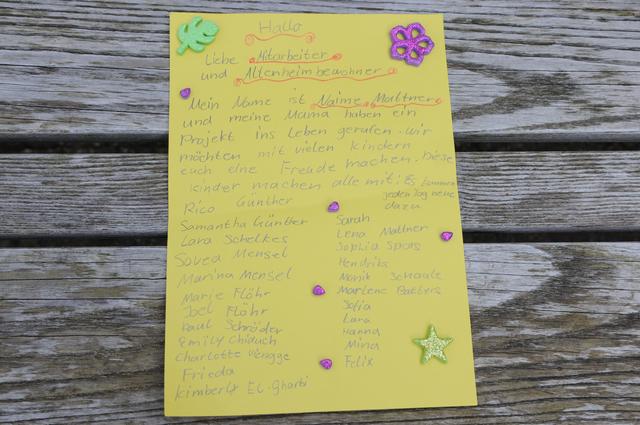 Hallo
Liebe Mitarbeiter
und Altenheimbewohner
Mein Name ist Naime Maltner
und meine Mama haben ein
Projekt ins Leben gerufen. wir
möchten mit vielen kindern
euch eine Freude machen. Diese
kinder machen alle mit: Es kommen
jeden Tag neue
dazu
Rico Günther
Samantha Günther
Lara Schelkes
Mensel
Marina Mensel
Marje Flöhr
Joel Flöhr
Paul Schröder
Emily
Charlotte
Frieda
Kimberly EL-Gharbi
Sarah
Lena Maltner
Sophia
Hendriks
Schaale
Marlene
Sofia
Lara
Hanna
Mina
Felix